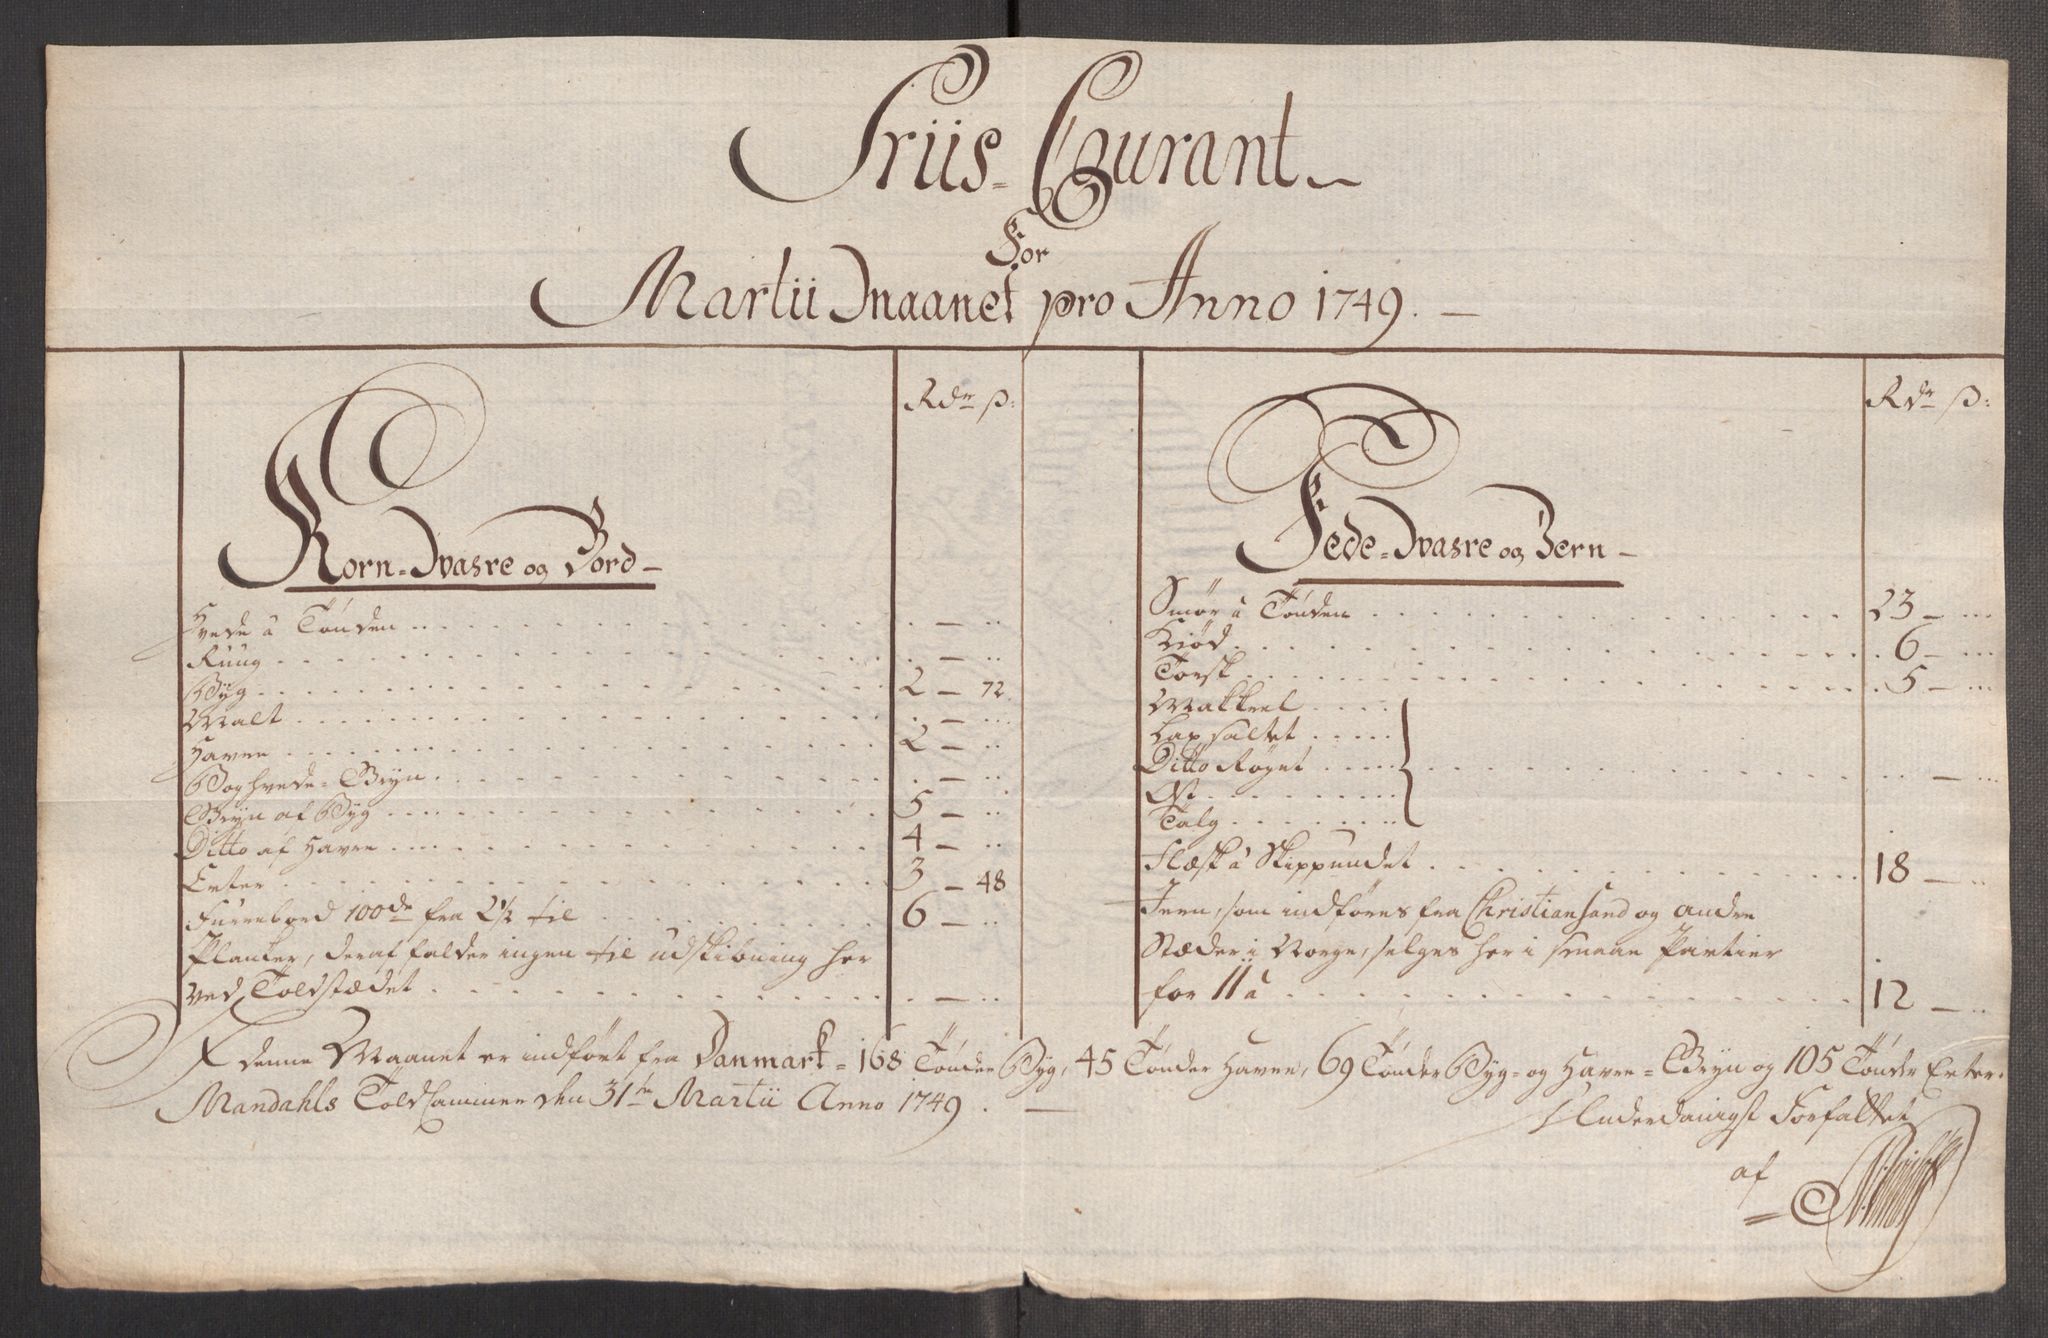 Priis-Courant
For
Martii Maanet pro Anno 1749.
Rdr ß:
Korn-Vahre og Bord
Hvede â Tönden .. — ..
Rüug . — ..
Byg 2 — 72
Malt . — ...
Havre 2 — ..
Boghvede-Gryn . — ..
Gryn af Byg 5 — ..
Ditto af Havre 4 — ..
Erter 3 — 48
Furrebord 100de fra 2½ til 6 — ..
Planker, deraf falder ingen til udskibning her
ved Toldstædet . — ..
Rdr ß:
Fede-Vahre og Jern
Smör â Tönden 23 — ...
Kiød 6 — ...
Torsk 5 — ...
Makreel
Lax saltet
Ditto Røget .. — ...
Ost
Talg
Flæsk â Skippundet 18 — ..
Jern, som indföres fra Christiansand og andre
Stæder i Norge, selges her i smaae Partier
for 11 â 12 — ..
I denne Maanet er indfört fra Danmark = 168 Tönder Byg, 45 Tönder Havre, 69 Tönder Byg- og Havre-Gryn og 105 Tönder Erter.
Mandahls Told Cammer den 31te Martii Anno 1749.
Underdanigst Forfattet
af